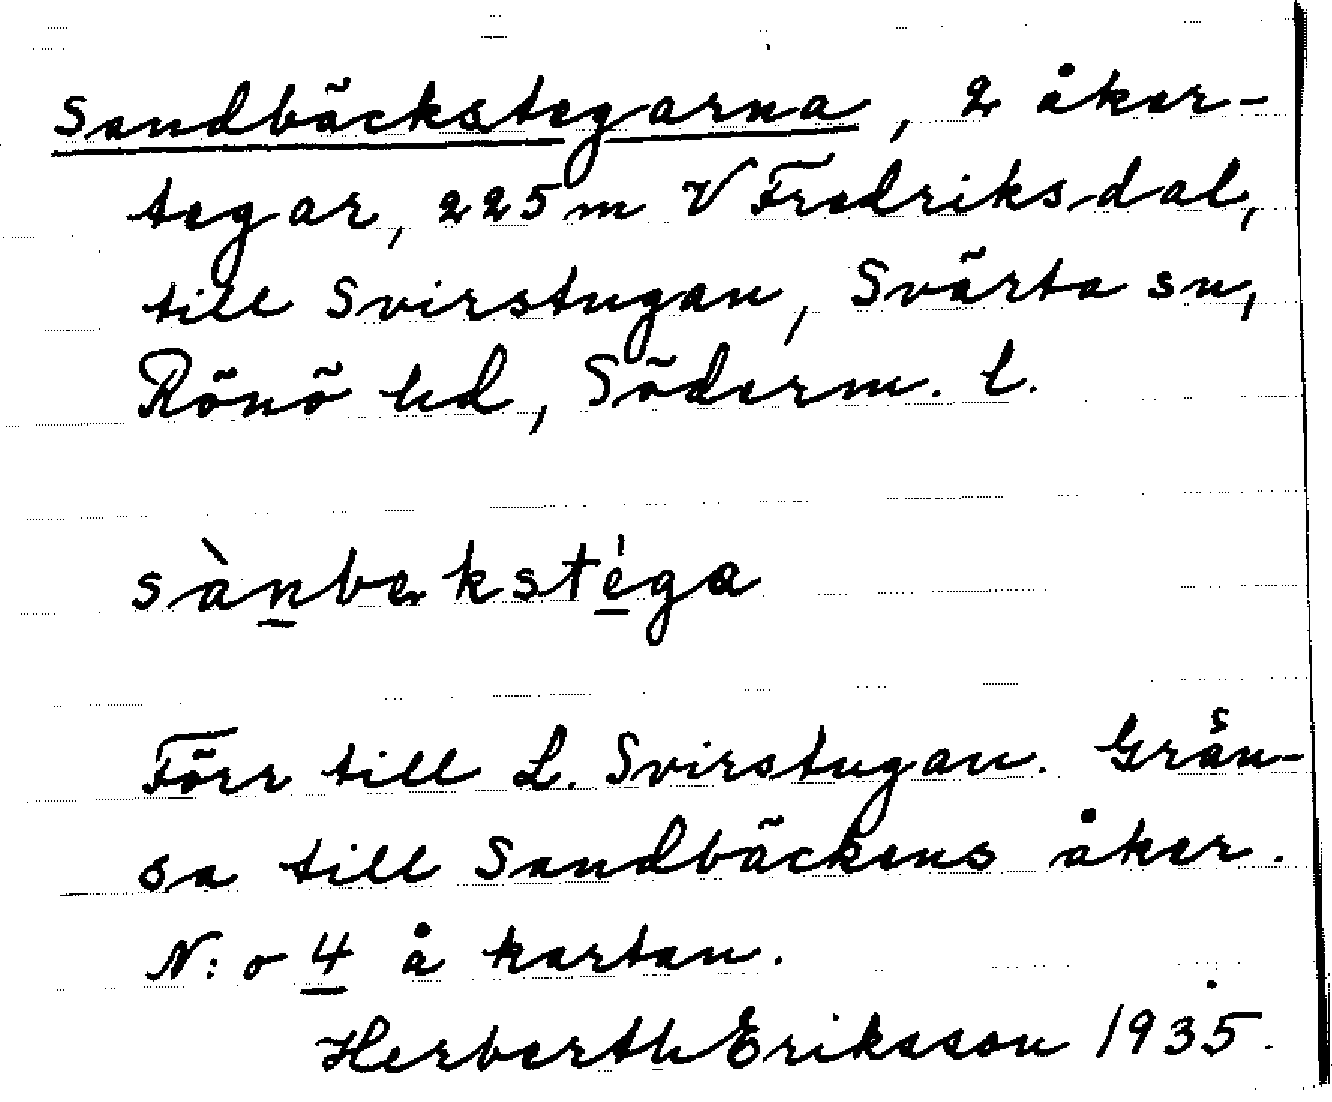 Sandbäckstegarna, 2 åker-
tegar, 225 m V Fredriksdal,
till Svirstugan, Svärta sn,
Rönö hd, Söderm. l.
sànbekstéga
Förr till L. Svirstugan. Grän-
sa till Sandbäckens åker.
N:o 4 å kartan.
Herberth Eriksson 1935.